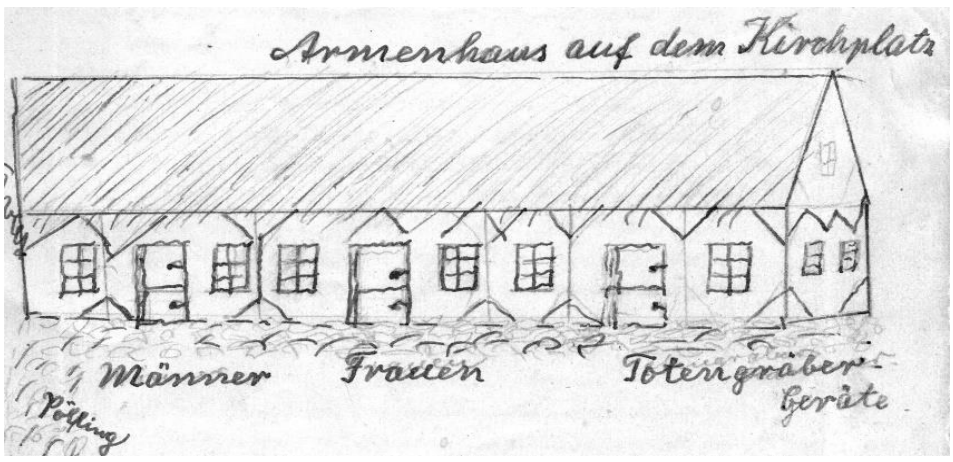 Armenhaus auf dem Kirchplatz
Männer Frauen Totengräber-
Geräte